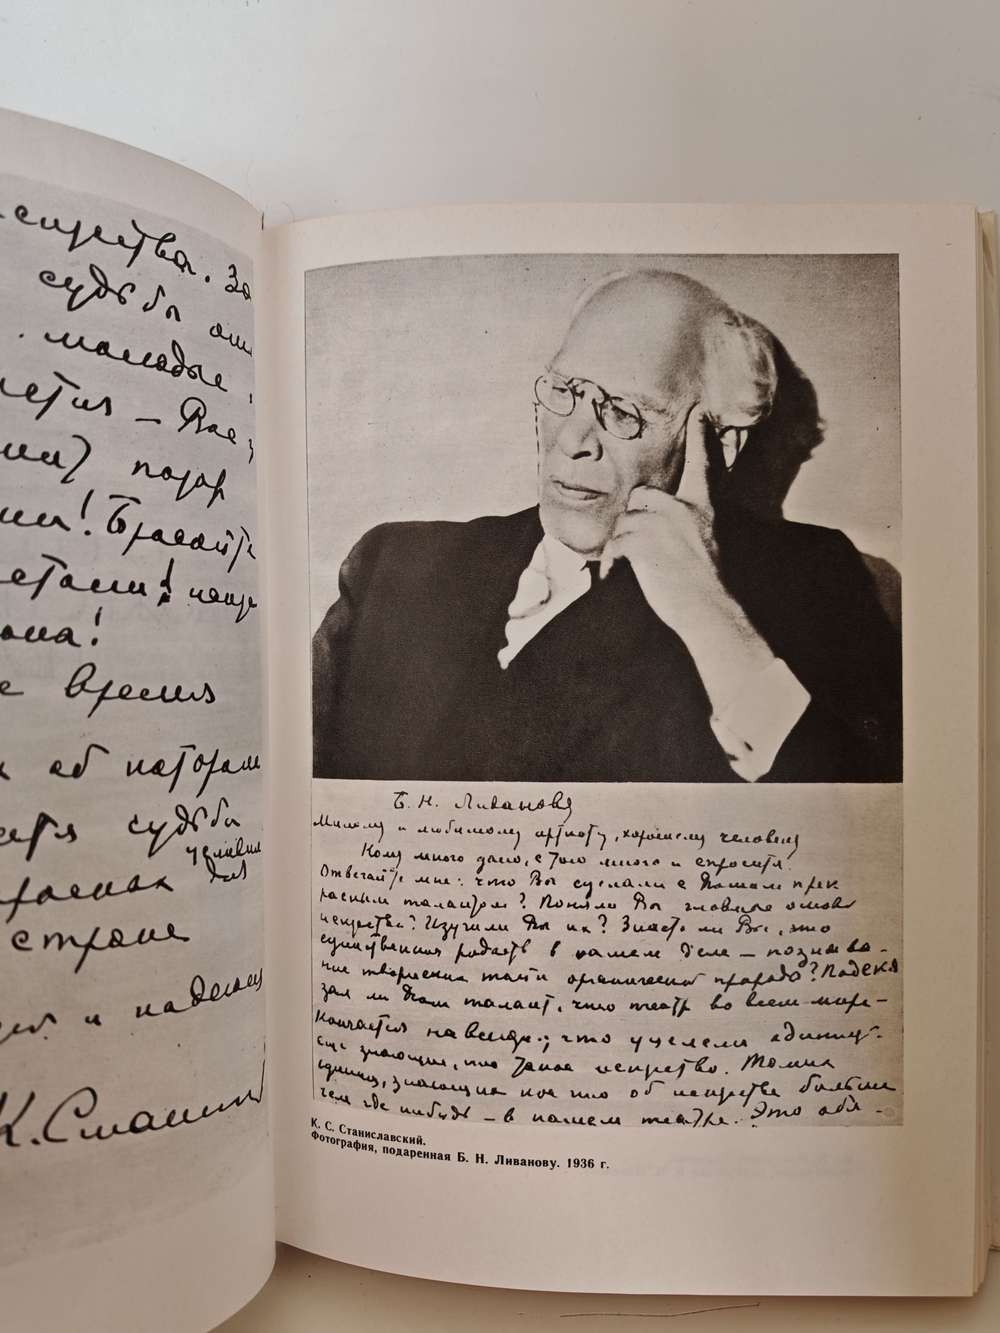 сусства. За
судьбы
молодые
Вас,
позор
! Бросайте
!
!
время
об котором
судьбы
условия
для
стране
и надеюсь
К. Стани
Б. Н. Ливанову
Милому и любимому артисту, хорошему человеку
Кому много дано, с того много и спросится.
Отвечайте мне: что Вы сделали с Вашим прек
расным талантом? Поняли Вы главные основы
искусства? Изучили Вы их? Знаете ли Вы, что
единственная радость в нашем деле – познава-
ние творческих тайн органической природы? Подска
зал ли Вам талант, что театр во всем мире
кончается навсегда; что уцелели единицы
еще знающие, что такое искусство. Только
единицы, знающих кое что об искусстве больше
чем где нибудь – в нашем театре. Это обя-
К. С. Станиславский.
Фотография, подаренная Б. Н. Ливанову. 1936 г.